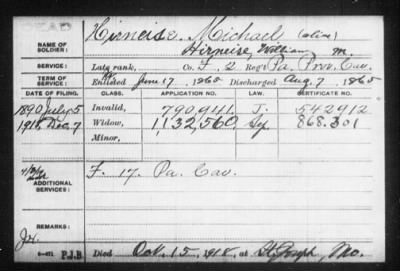 DEAD
Hirneise, Michael (alias)
NAME OF SOLDIER: Hirneise, William M.
SERVICE: Late rank, Co. F, 2 Reg't Pa. Prov. Cav.
TERM OF SERVICE: Enlisted June 17, 1865 Discharged Aug. 7, 1865
DATE OF FILING. CLASS. APPLICATION NO. LAW. CERTIFICATE NO.
1890 July 5 Invalid, 790941. J. 542912
Dec. 7 Widow, 1,132,560 868.301
Minor,
ADDITIONAL SERVICES: F. 17. Pa. Cav.
REMARKS:
P.J.B. Died Oct. 15, 1918, at St. Joseph Mo.